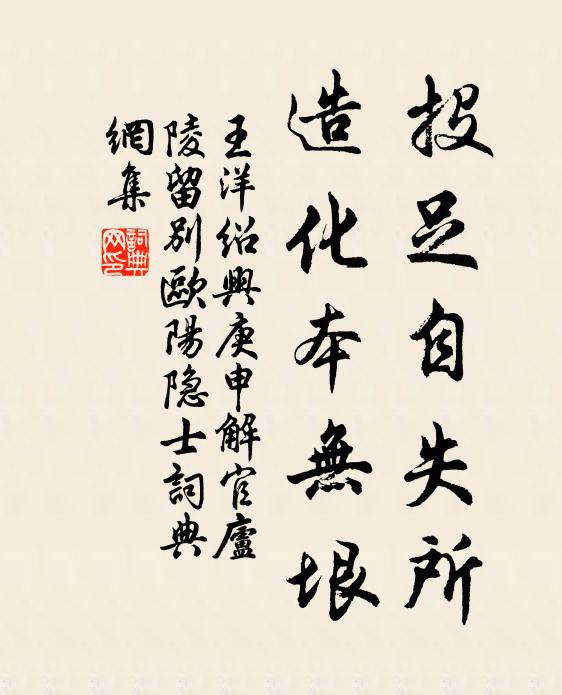 投足自失所
造化本無垠
王洋紹興庚申解官廬
陵留別歐陽隐士詞典
網集
詞典
网印